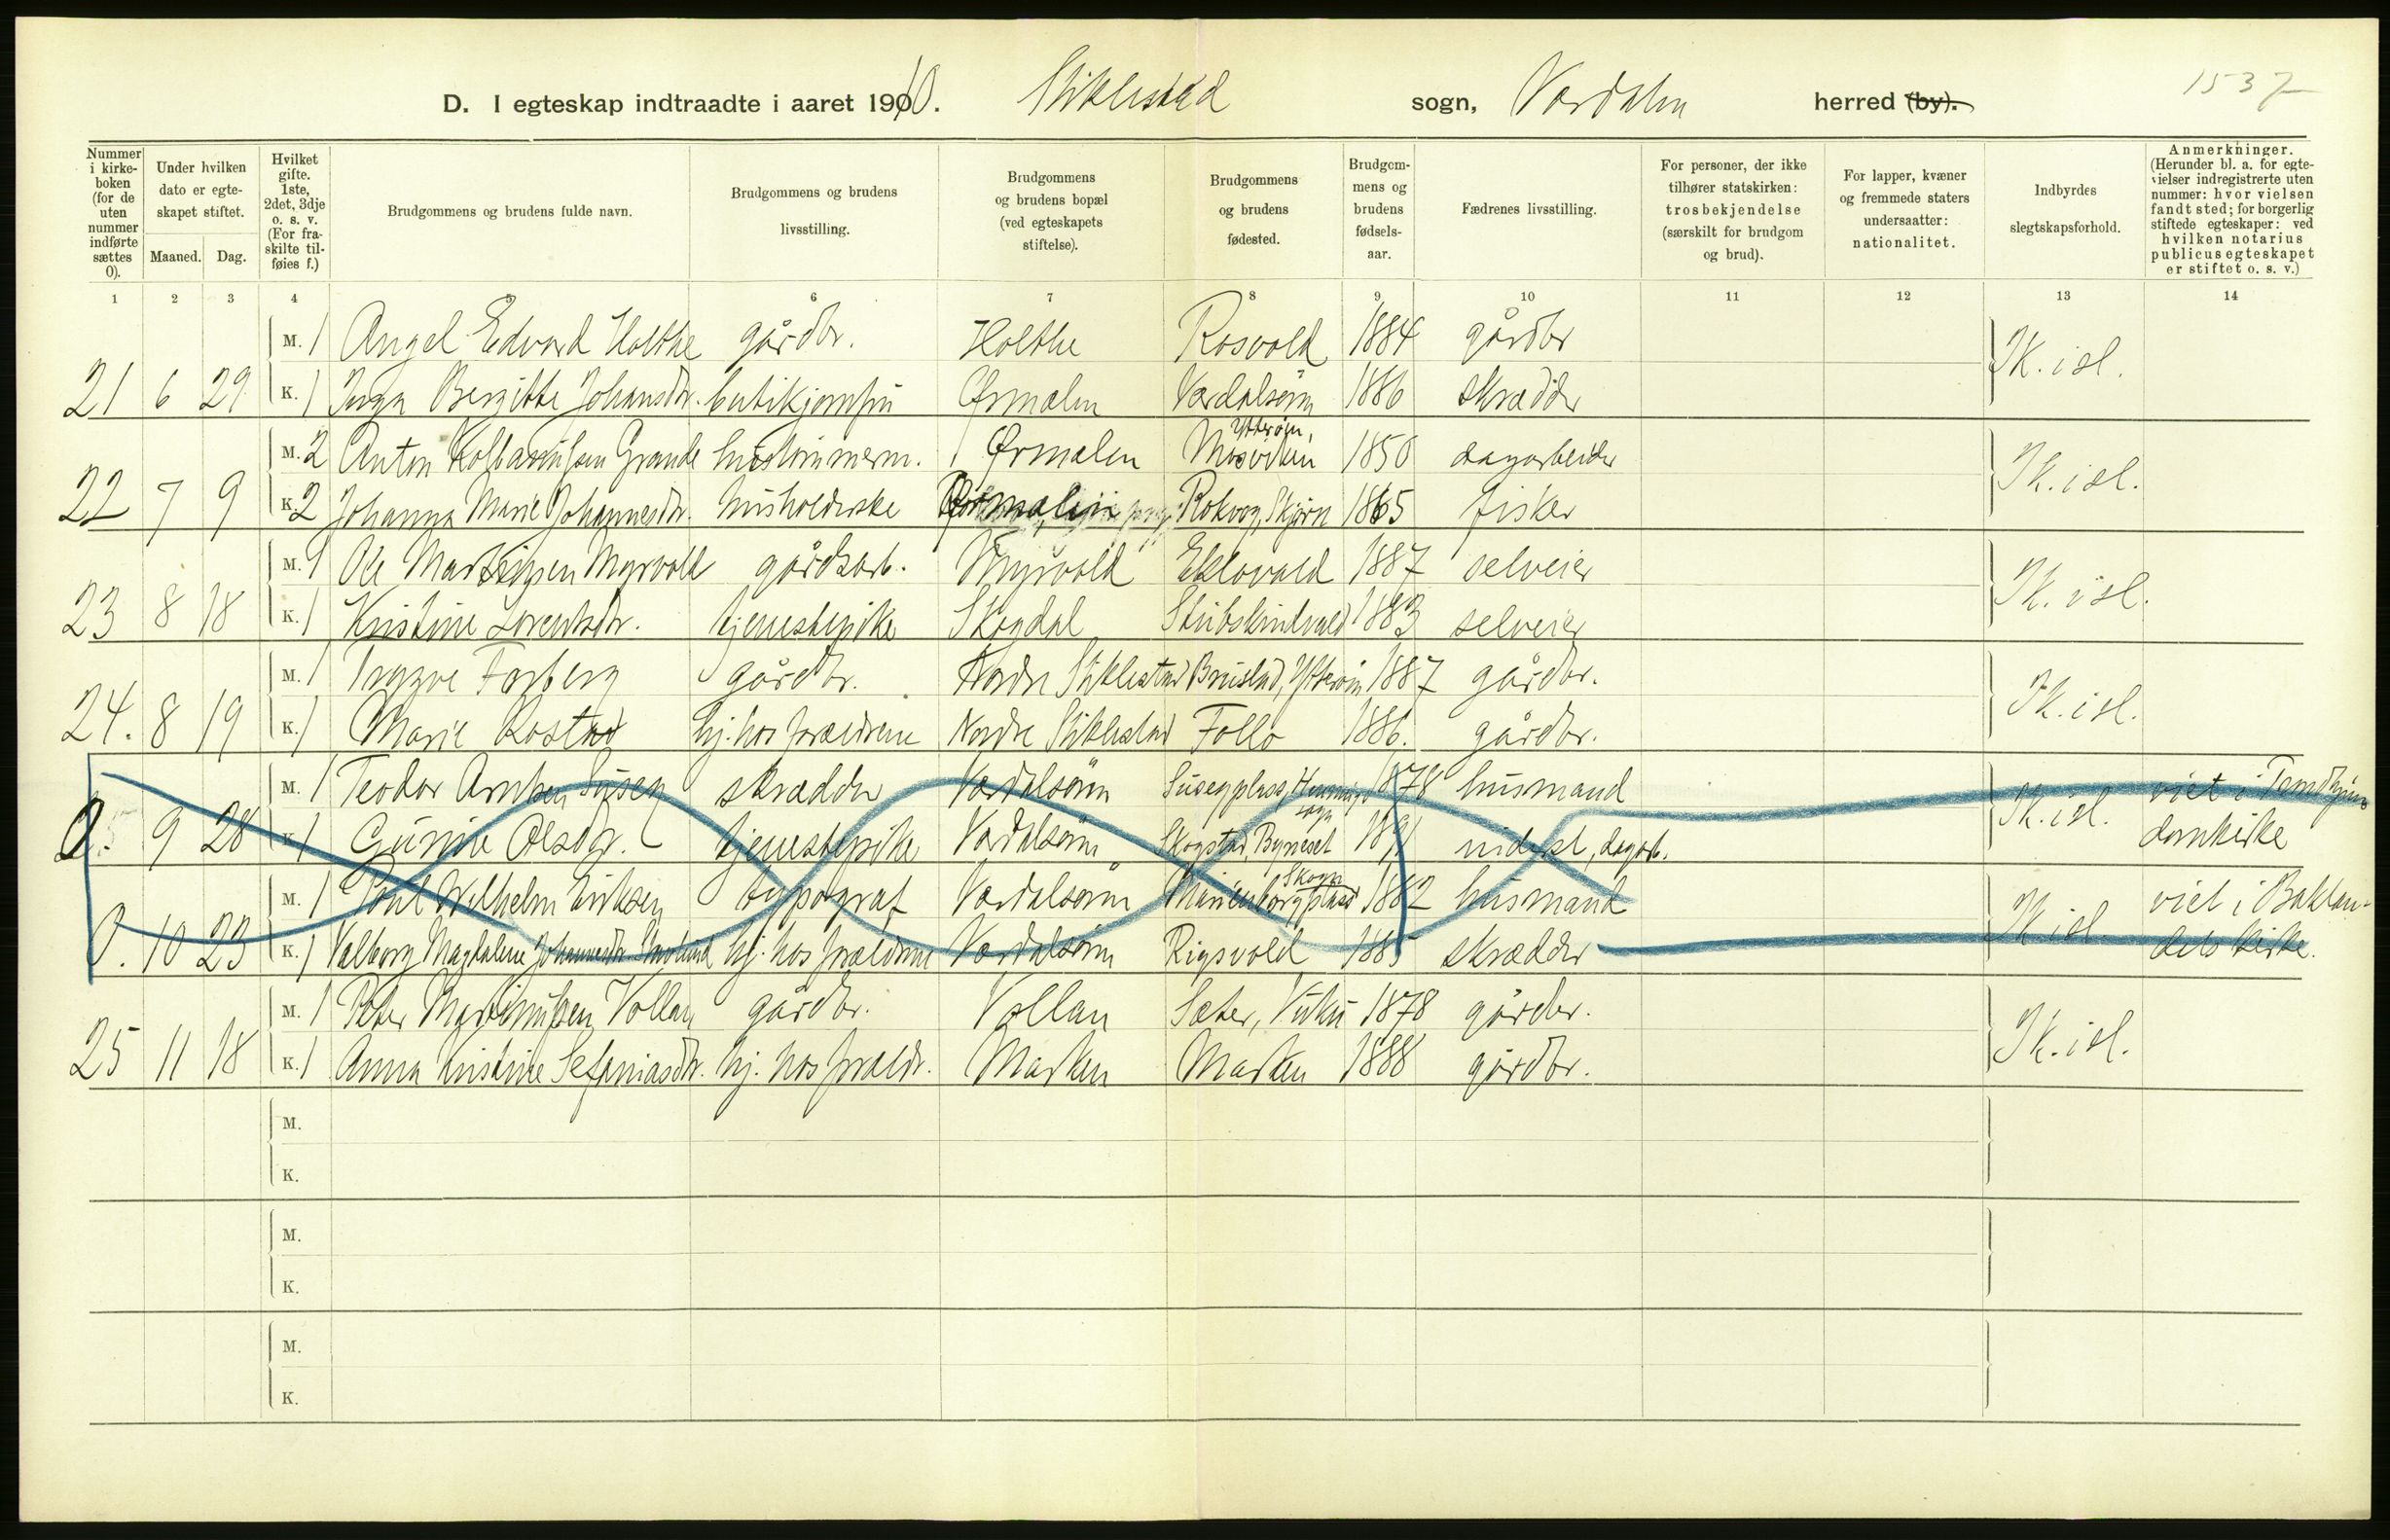 1537
D. I egteskap indtraadte i aaret 1910. Stiklestad sogn, Værdalen herred (by).
Nummer i kirkeboken (for de uten nummer indførte sættes 0).
Under hvilken dato er egteskapet stiftet.
Maaned. Dag.
Hvilket gifte. 1ste, 2det, 3dje o. s. v. (For fraskilte tilføies f.)
Brudgommens og brudens fulde navn.
Brudgommens og brudens livsstilling.
Brudgommens og brudens bopæl (ved egteskapets stiftelse).
Brudgommens og brudens fødested.
Brudgommens og brudens fødselsaar.
Fædrenes livsstilling.
For personer, der ikke tilhører statskirken: trosbekjendelse (særskilt for brudgom og brud).
For lapper, kvæner og fremmede staters undersaatter: nationalitet.
Indbyrdes slegtskapsforhold.
Anmerkninger. (Herunder bl. a. for egtevielser indregistrerte uten nummer: hvor vielsen fandt sted; for borgerlig stiftede egteskaper: ved hvilken notarius publicus egteskapet er stiftet o. s. v.)
1 2 3 4 5 6 7 8 9 10 11 12 13 14
M. 1 Angel Edvard Holthe gårdbr. Holthe Rosvold 1884 gårdbr
21 6 29 K. 1 Inga Bergitte Johansdtr. butikjomfru Ørmelen Værdalsøren 1886 skrædder IK. isl.
M. 2 Anton Kolbanussen Grande hustømmerm. Ørmelen Mosviken Ytterøen, 1850 dagarbeider
22 7 9 K. 2 Johanna Marie Johannesdtr. husholderske Ørmelen Rokvog, Skjørn 1865 fisker IK. isl.
M. 1 Ole Martinsen Myrvold gårdsarb. Myrvold Eklovald 1887 selveier
23 8 18 K. 1 Kristine Lorentsdtr. tjenestepike Skogdal Stubskindvald 1883 selveier IK. isl.
M. 1 Trygve Forberg gårdbr. Nordre Stiklestad Bruslad, Ytterøen 1887 gårdbr.
24. 8 19 K. 1 Marie Rostad hj. hos forældrene Nordre Stiklestad Follo 1886. gårdbr. IK. isl.
M. 1 Teodor Arntsen Suseg skrædder Værdalsøren Susegplass, Henning sogn 1878 husmand viet i Trondhjems
0. 9 28 K. 1 Gurine Olsdr. tjenestepike Værdalsøren Skogstad, Byneset 1891 dagarb. IK. isl. domkirke
M. 1 Wilhelm Eriksen typograf Værdalsøren Marienborgplass Skogn 1882 husmand viet i Baklan-
0. 10 23 K. 1 Valborg Magdalene Johannesdtr. hj. hos forældrene Værdalsøren Rigsvold 1885 skrædder IK. isl. dets kirke.
M. 1 Peter Martinusen Vollan gårdbr. Vollan Sæter, Vuku 1878 gårdbr.
25 11 18 K. 1 Anna Kristine Sefaniasdtr. hj. hos forældr. Marken Marken 1888 gårdbr. IK. isl.
M.
K.
M.
K.
M.
K.